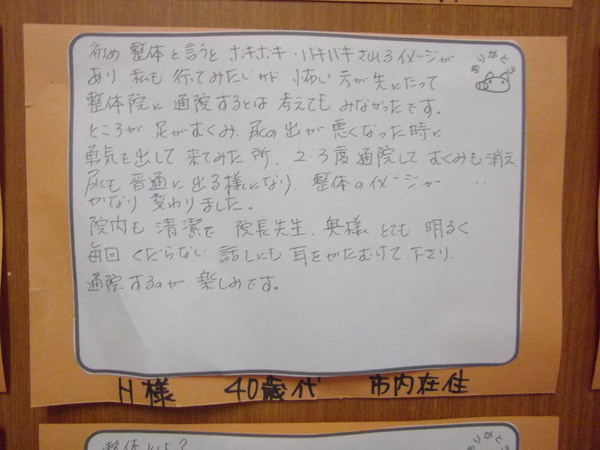 初め 整体と言うと ボキボキ・バキバキされるイメージが
あり 私も行ってみたいケド 怖い方が先にたって
整体院に通院するとは考えてもみなかったです。
ところが 足がむくみ 尿の出が悪くなった時に
勇気を出して来てみた所、2・3度通院して むくみも消え
尿も普通に出る様になり、整体のイメージャー
かなり変わりました。
院内も清潔で、院長先生、奥様 とても明るく
毎回くだらない話しにも耳をかたむけて下さり、
通院するのが楽しみです。
ありがとう
H様 40歳代 市内在住
整体とは?
ありがと